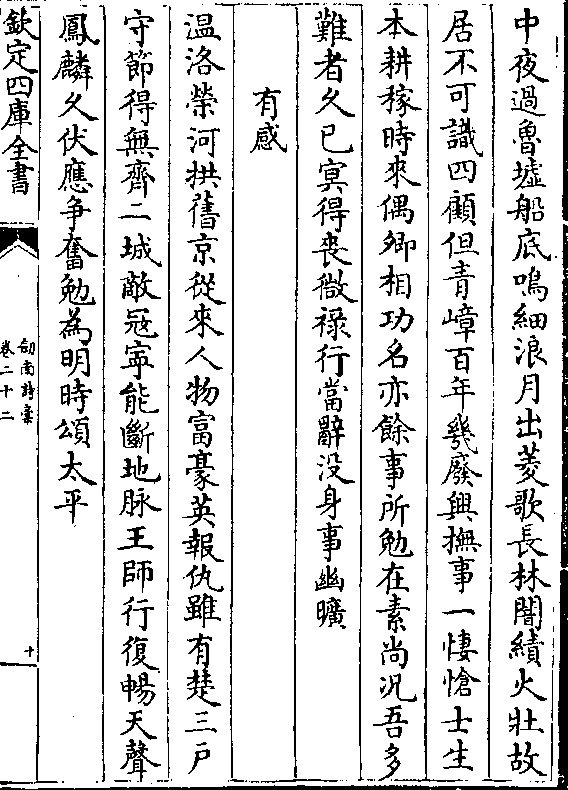 中夜過魯墟船底鳴細浪月出菱歌長林闇績火壯故
居不可識四顧但青嶂百年幾廢興撫事一悽愴士生
本耕稼時來偶卿相功名亦餘事所勉在素尚况吾多
難者久已㝠得喪微禄行當辭没身事幽曠
有感
温洛榮河拱舊京從來人物富豪英報仇雖有楚三户
守節得無齊二城敵冦寜能斷地脉王師行復暢天聲
鳳麟久伏應争奮勉為明時頌太平
欽定四庫全書
劍南詩藁
卷二十二
十